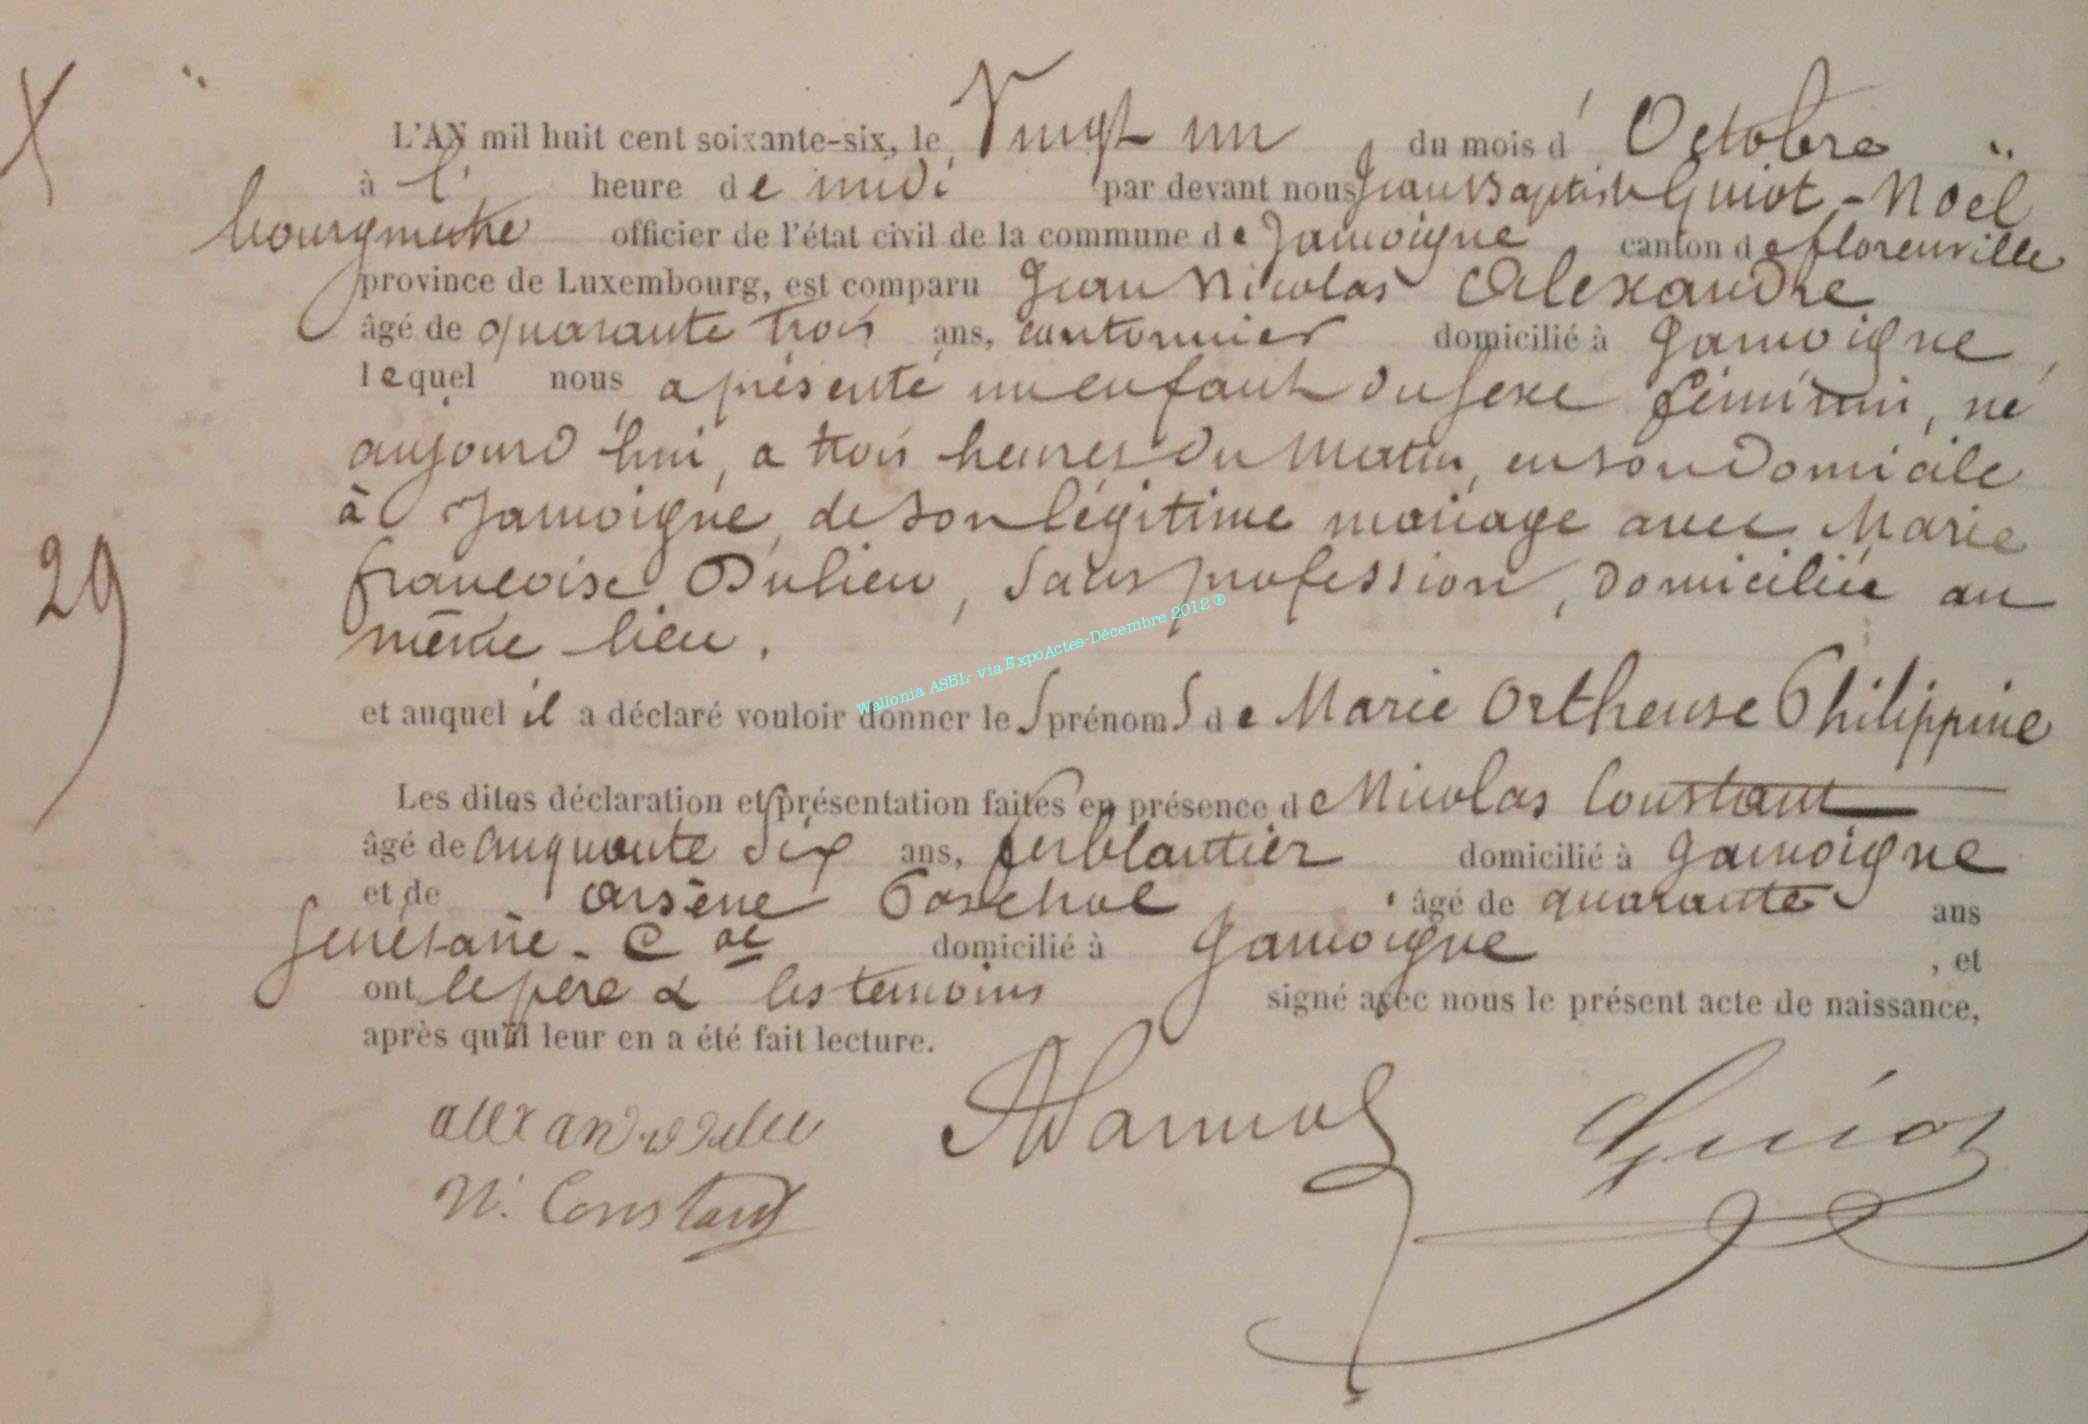 L'AN mil huit cent soixante-six, le Vingt un du mois d' Octobre
à l' heure de midi par devant nous Jean Baptiste Guiot-Noël
bourgmestre officier de l'état civil de la commune de Jamoigne canton de florenville
province de Luxembourg, est comparu Jean Nicolas Alexandre
âgé de quarante trois ans, cantonnier domicilié à Jamoigne,
lequel nous a présenté un enfant du sexe féminin, né
aujourd'hui, a trois heures du matin, en son domicile
à Jamoigne, de son légitime mariage avec Marie
françoise Dulieu, sans profession, domiciliée au
29
même lieu.
Wallonia ASBL via ExpoActes-Décembre 2012 ®
et auquel il a déclaré vouloir donner les prénoms de Marie Ortheuse Philippine
Les dites déclaration et présentation faites en présence de Nicolas Constant
âgé de cinquante six ans, ferblantier domicilié à Jamoigne
et de arsène âgé de quarante ans
secrétaire - Cal domicilié à Jamoigne, et
ont le père & les temoins signé avec nous le présent acte de naissance,
après qu'il leur en a été fait lecture.
Guiot
N. Constant